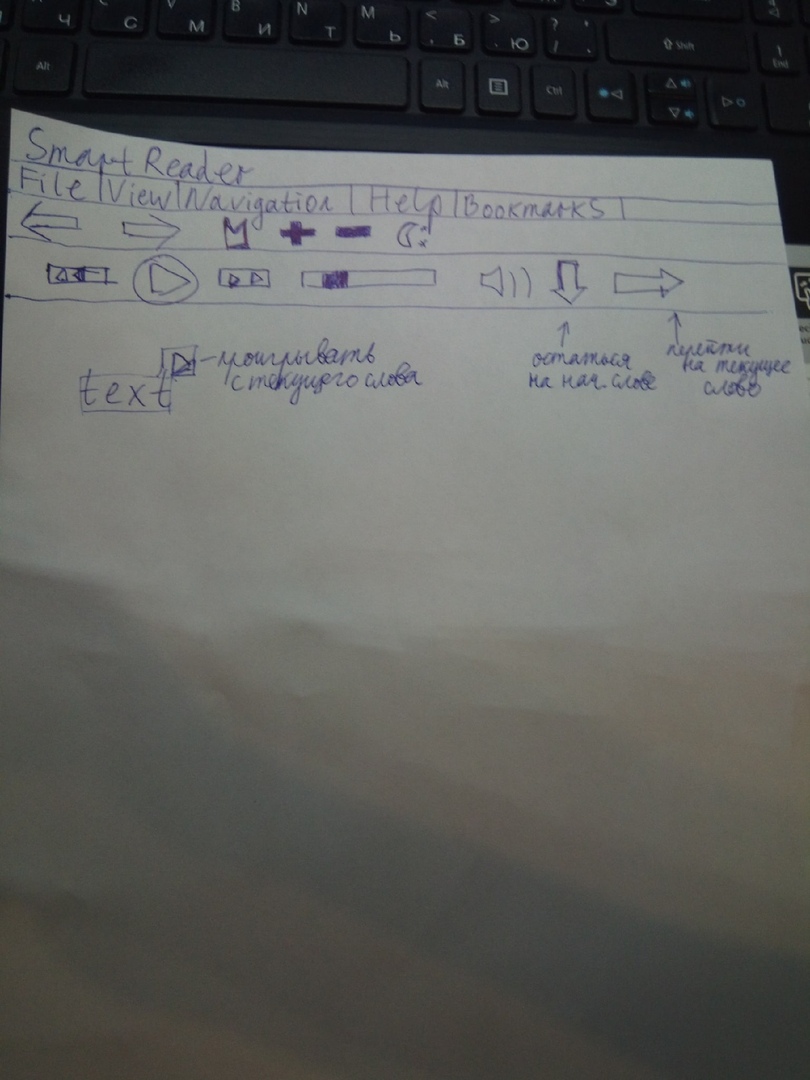 Ч
С
V
М
В
И
N
Т
М
Ь
<
,
Б
>
.
Ю
?
/
.
Shift
End
Alt
Alt
Ctrl
Smart Reader
File | View | Navigation | Help | Bookmarks |
text
проигрывать
с текущего слова
остаться
на нач. слове
перейти
на текущее
слово